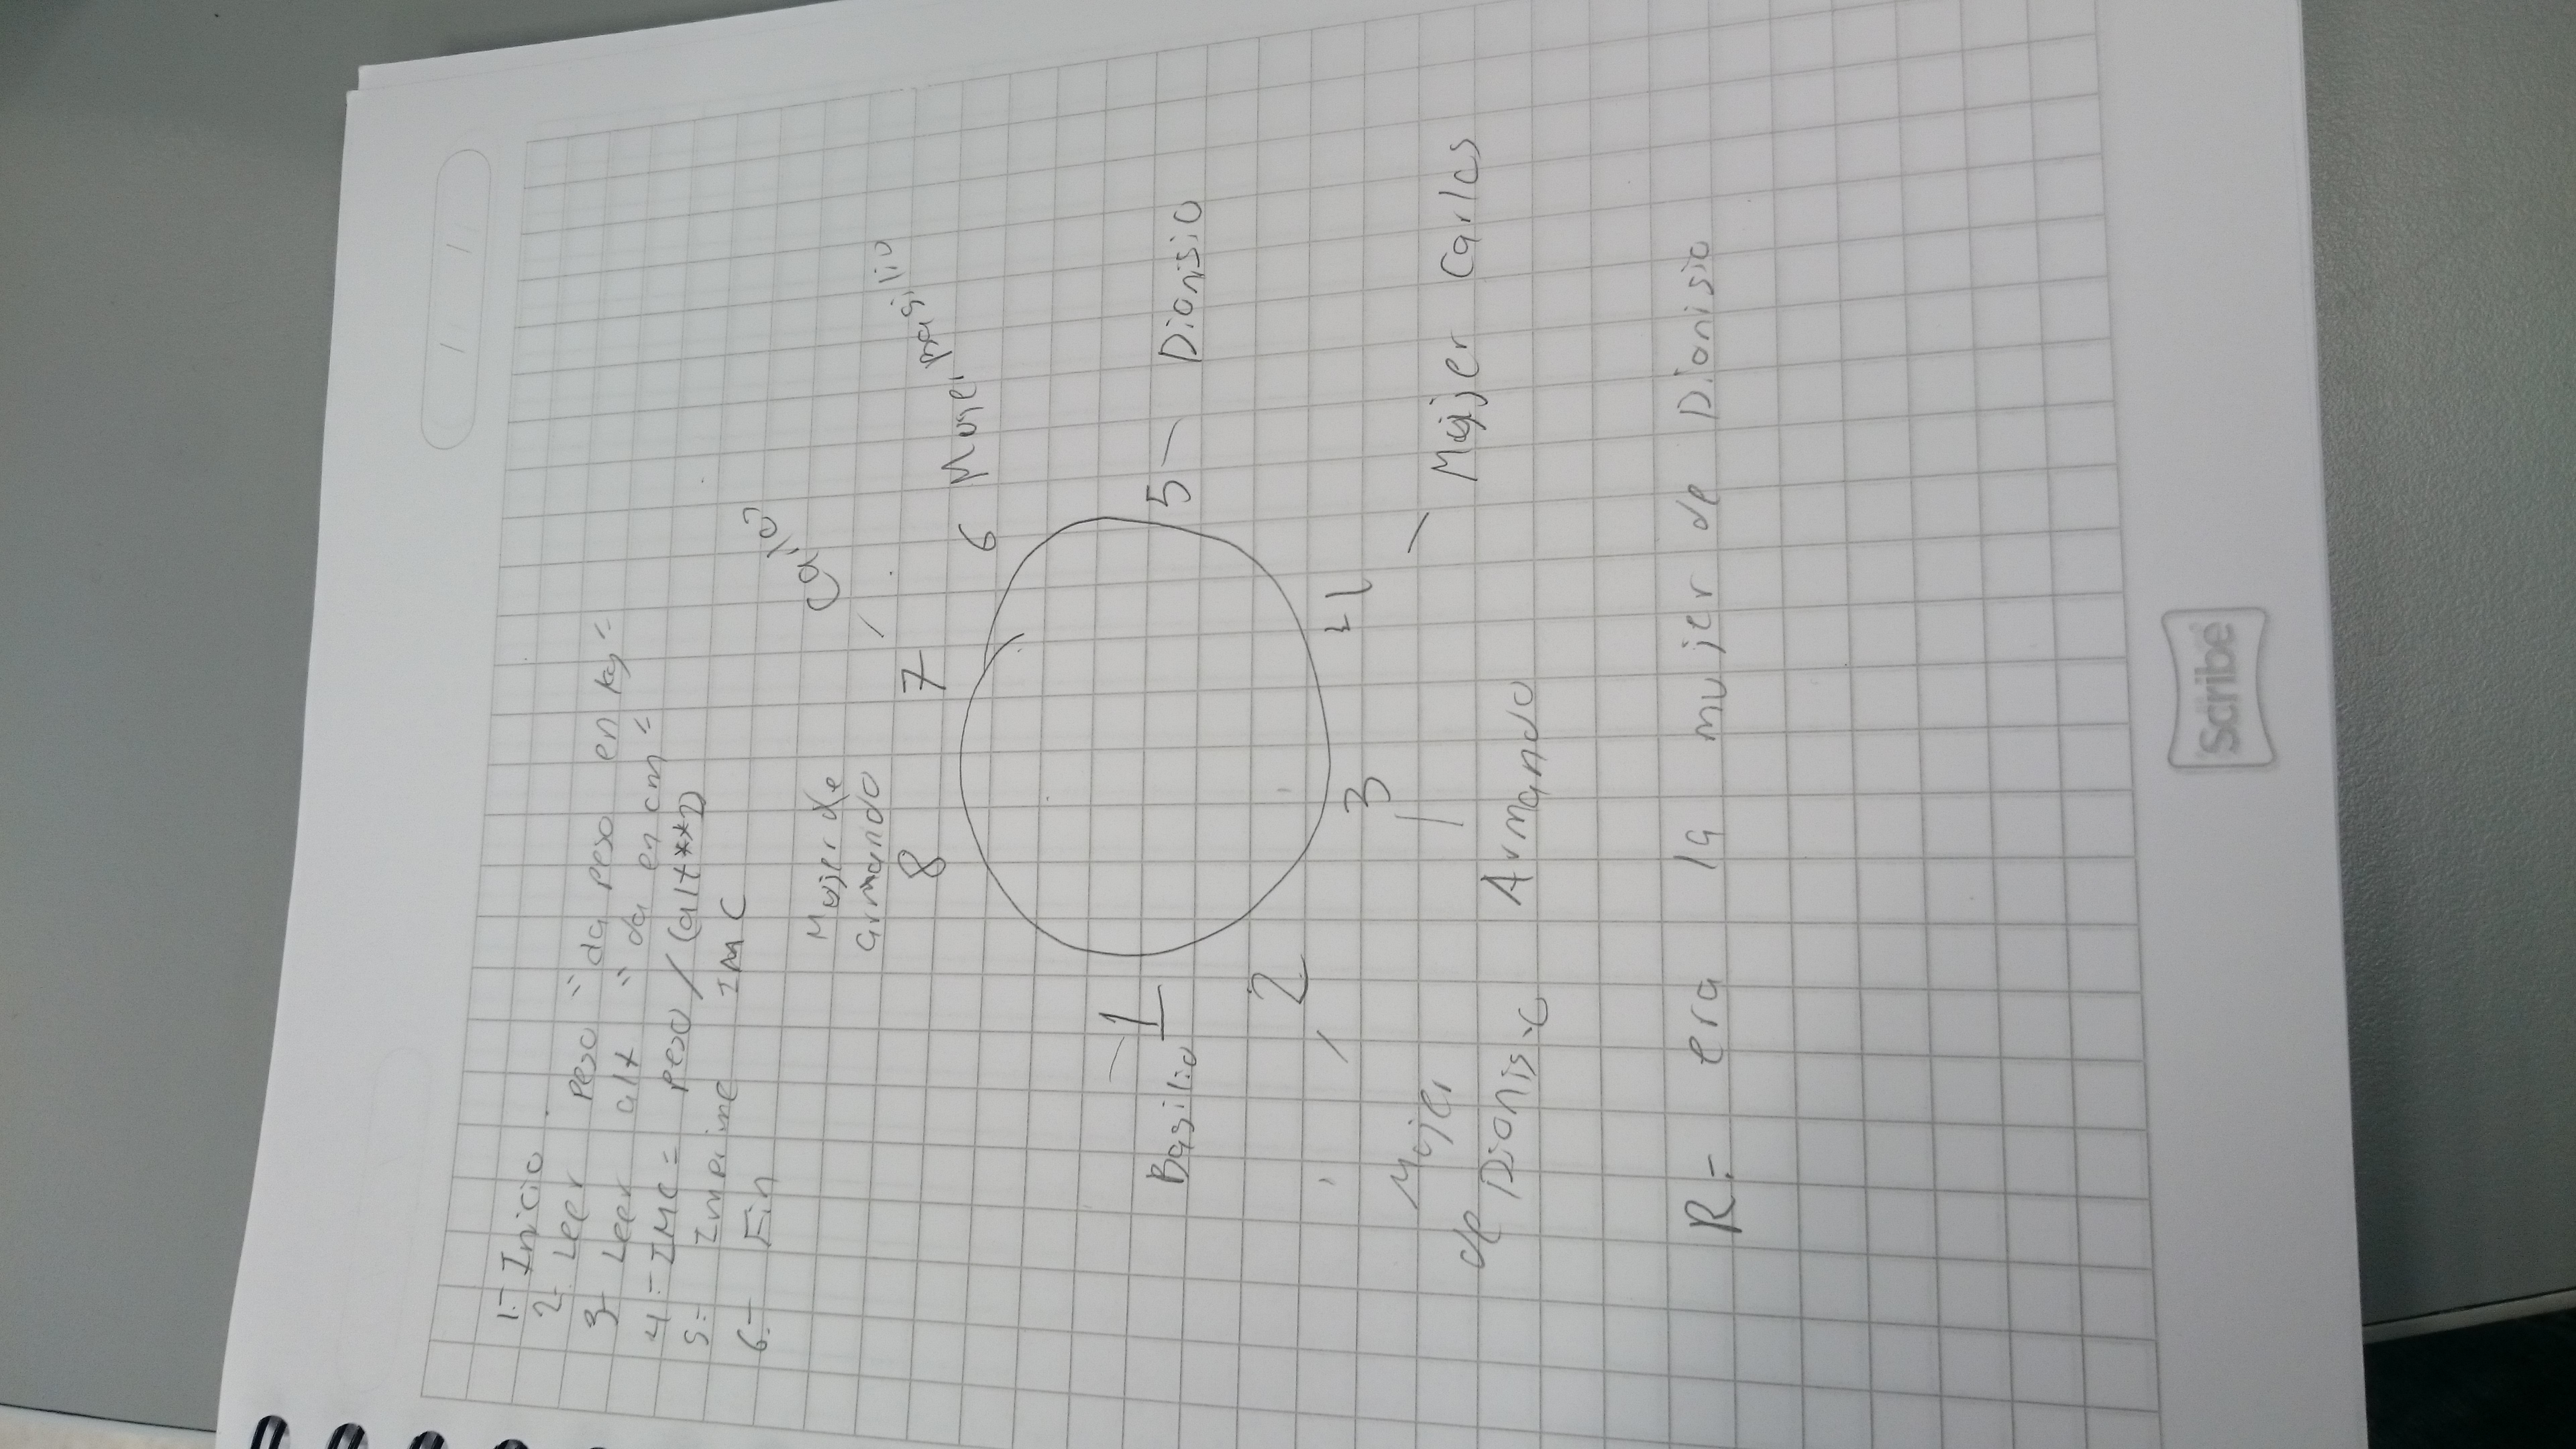 1.- Inicio
2.- Leer peso "da peso en kg"
3- Leer alt "da en cm"
4.- IMC = peso / (alt**2)
5.- Imprime IMC
6.- Fin
Mujer de
armando
Carlos
8
7
6 Mujer Basilio
1
Basilio
5 - Dionisio
2
3
4
Mujer
de Dionisio
Armando
Mujer Carlos
R.- era la mujer de Dionisio
Scribe